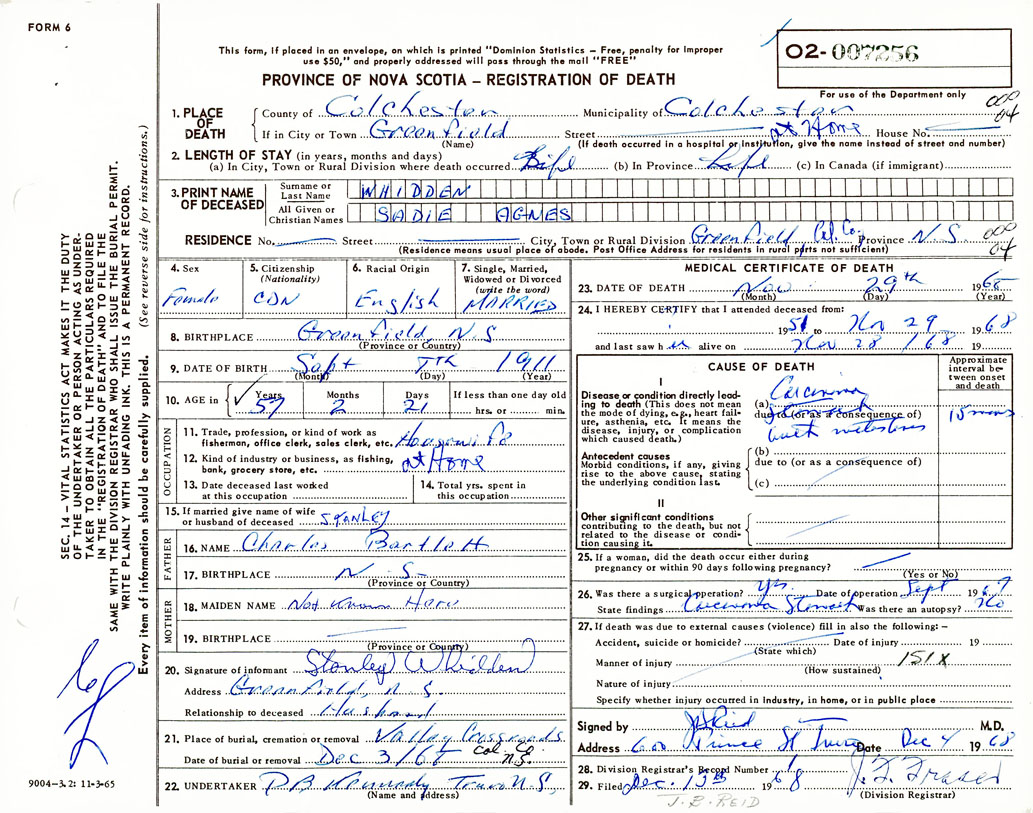 FORM 6
This form, if placed in an envelope, on which is printed "Dominion Statistics – Free, penalty for improper
use $50," and properly addressed will pass through the mail "FREE"
PROVINCE OF NOVA SCOTIA – REGISTRATION OF DEATH
02-007256
For use of the Department only
000
04
1. PLACE OF DEATH
County of Colchester Municipality of Colchester
If in City or Town Greenfield Street at Home House No.
(Name) (If death occurred in a hospital or institution, give the name instead of street and number)
2. LENGTH OF STAY (in years, months and days)
(a) In City, Town or Rural Division where death occurred Life (b) In Province Life (c) In Canada (if immigrant)
3. PRINT NAME OF DECEASED
Surname or Last Name WHIDDEN
All Given or Christian Names SADIE AGNES
RESIDENCE No. Street City, Town or Rural Division Greenfield Col. Co. Province N.S
(Residence means usual place of abode. Post Office Address for residents in rural parts not sufficient)
000
04
4. Sex
Female
5. Citizenship
(Nationality)
CDN
6. Racial Origin
English
7. Single, Married,
Widowed or Divorced
(write the word)
MARRIED
8. BIRTHPLACE Greenfield, N.S
(Province or Country)
9. DATE OF BIRTH Sept 7th 1911
(Month) (Day) (Year)
10. AGE in Years Months Days If less than one day old
57 2 21 hrs. or min.
OCCUPATION
11. Trade, profession, or kind of work as
fisherman, office clerk, sales clerk, etc. Housewife
12. Kind of industry or business, as fishing,
bank, grocery store, etc. at Home
13. Date deceased last worked
at this occupation
14. Total yrs. spent in
this occupation
15. If married give name of wife
or husband of deceased STANLEY
FATHER
16. NAME Charles Bartlett
17. BIRTHPLACE N.S.
(Province or Country)
MOTHER
18. MAIDEN NAME Not Known Here
19. BIRTHPLACE
(Province or Country)
20. Signature of informant Stanley Whidden
Address Greenfield, N.S.
Relationship to deceased Husband
21. Place of burial, cremation or removal Valley Crossroads
Date of burial or removal Dec 3/68 Col. Co. N.S.
22. UNDERTAKER Kennedy Truro N.S.
(Name and Address)
MEDICAL CERTIFICATE OF DEATH
23. DATE OF DEATH Nov 29th 1968
(Month) (Day) (Year)
24. I HEREBY CERTIFY that I attended deceased from:
1951 to Nov 29 1968
and last saw h er alive on Nov 28 / 68 19
CAUSE OF DEATH
Approximate
interval be-
tween onset
and death
I
Disease or condition directly lead-
ing to death (This does not mean
the mode of dying, e.g., heart fail-
ure, asthenia, etc. It means the
disease, injury, or complication
which caused death.)
(a) Carcinoma
Stomach
due to (or as a consequence of)
with metastases
15 mos
Antecedent causes
Morbid conditions, if any, giving
rise to the above cause, stating
the underlying condition last.
(b)
due to (or as a consequence of)
(c)
II
Other significant conditions
contributing to the death, but not
related to the disease or condi-
tion causing it.
25. If a woman, did the death occur either during
pregnancy or within 90 days following pregnancy?
(Yes or No)
26. Was there a surgical operation? yes Date of operation Sept 1967
State findings Carcinoma Stomach Was there an autopsy? No
27. If death was due to external causes (violence) fill in also the following: –
Accident, suicide or homicide? Date of injury 19
(State which)
Manner of injury 151X
(How sustained)
Nature of injury
Specify whether injury occurred in industry, in home, or in public place
Signed by JB Reid M.D.
Address 600 Prince St Truro Date Dec 4 1968
28. Division Registrar's Record Number
29. Filed Dec. 13th 1968 J. F. Fraser
(Division Registrar)
J. B. REID
SEC. 14 – VITAL STATISTICS ACT MAKES IT THE DUTY
OF THE UNDERTAKER OR PERSON ACTING AS UNDER-
TAKER TO OBTAIN ALL THE PARTICULARS REQUIRED
IN THE "REGISTRATION OF DEATH" AND TO FILE THE
SAME WITH THE DIVISION REGISTRAR WHO SHALL ISSUE THE BURIAL PERMIT.
WRITE PLAINLY WITH UNFADING INK. THIS IS A PERMANENT RECORD.
Every item of information should be carefully supplied. (See reverse side for instructions.)
9004-3.2: 11-3-65